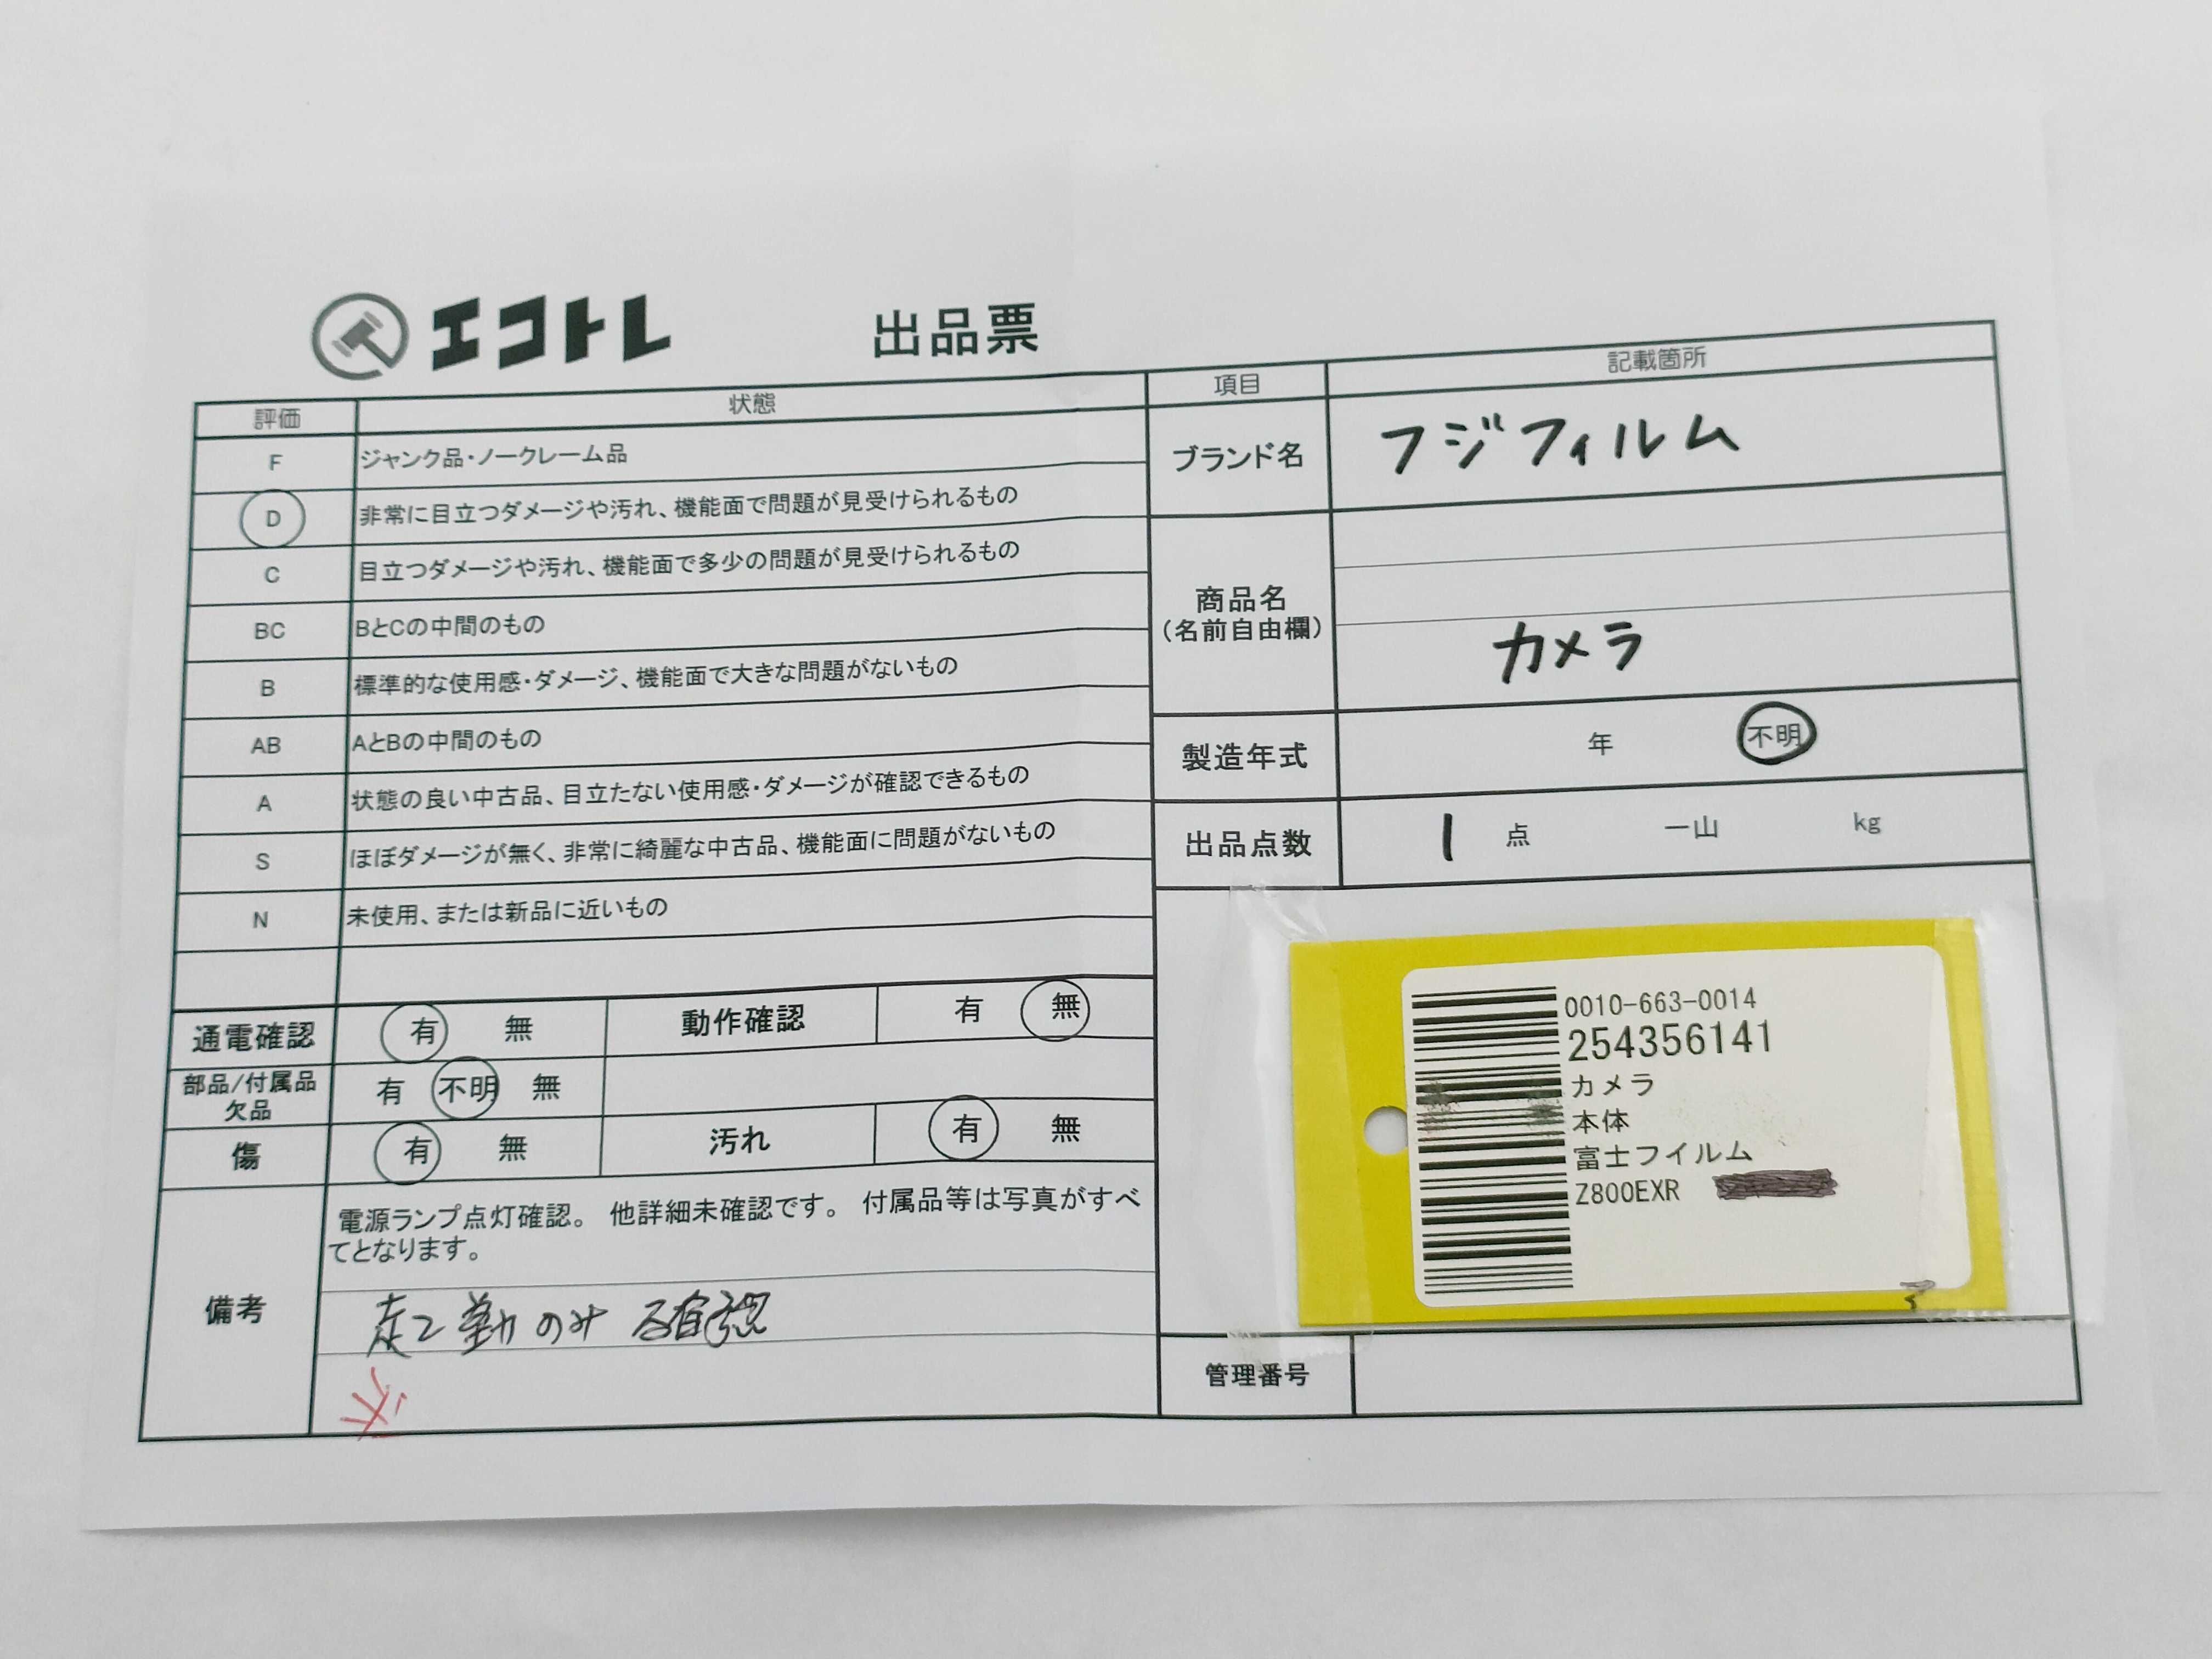 エコトレ 出品票
評価 状態
F ジャンク品・ノークレーム品
D 非常に目立つダメージや汚れ、機能面で問題が見受けられるもの
C 目立つダメージや汚れ、機能面で多少の問題が見受けられるもの
BC BとCの中間のもの
B 標準的な使用感・ダメージ、機能面で大きな問題がないもの
AB AとBの中間のもの
A 状態の良い中古品、目立たない使用感・ダメージが確認できるもの
S ほぼダメージが無く、非常に綺麗な中古品、機能面に問題がないもの
N 未使用、または新品に近いもの
通電確認 有 無 動作確認 有 無
部品/付属品
欠品 有 不明 無
傷 有 無 汚れ 有 無
備考
電源ランプ点灯確認。 他詳細未確認です。 付属品等は写真がすべ
てとなります。
のみ 確認
項目 記載箇所
ブランド名 フジフィルム
商品名
(名前自由欄)
カメラ
製造年式 年 不明
出品点数 1 点 一山 kg
0010-663-0014
254356141
カメラ
本体
富士フイルム
Z800EXR
管理番号